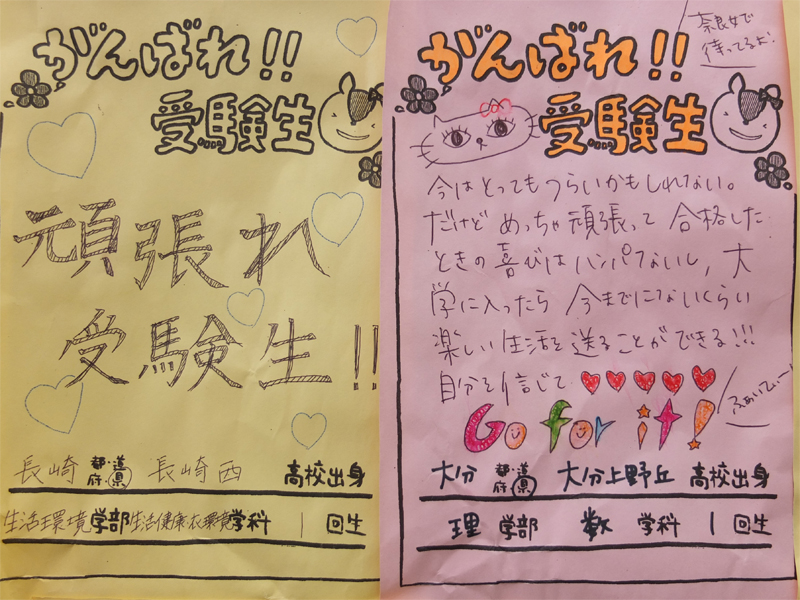 がんばれ!!
受験生
頑張れ
受験生!!
長崎 都・道・府・県 長崎西 高校出身
生活環境学部生活健康衣環境学科 1 回生
奈良女で
待ってるよ!
がんばれ!!
受験生
今はとってもつらいかもしれない。
だけど めっちゃ頑張って 合格した
ときの喜びはハンパないし,大
学に入ったら 今までにないくらい
楽しい生活を送ることができる!!!
自分を信じて♥♥♥♥♥
ふぁいてぃー
Go for it!
大分 都・道・府・県 大分上野丘 高校出身
理 学部 数 学科 1 回生